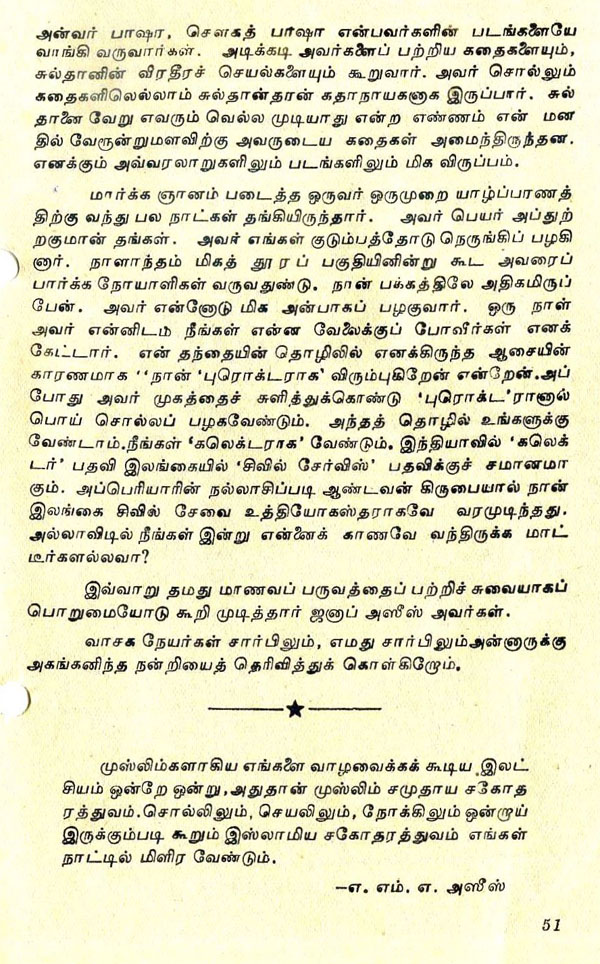 அன்வர் பாஷா, சௌகத் பாஷா என்பவர்களின் படங்களையே
வாங்கி வருவார்கள். அடிக்கடி அவர்களைப் பற்றிய கதைகளையும்,
சுல்தானின் விரதீரச் செயல்களையும் கூறுவார். அவர் சொல்லும்
கதைகளிலெல்லாம் சுல்தான்தான் கதாநாயகனாக இருப்பார். சுல்
தானை வேறு எவரும் வெல்ல முடியாது என்ற எண்ணம் என் மன
தில் வேரூன்றுமளவிற்கு அவருடைய கதைகள் அமைந்திருந்தன.
எனக்கும் அவ்வரலாறுகளிலும் படங்களிலும் மிக விருப்பம்.
மார்க்க ஞானம் படைத்த ஒருவர் ஒருமுறை யாழ்ப்பாணத்
திற்கு வந்து பல நாட்கள் தங்கியிருந்தார். அவர் பெயர் அப்துற்
றகுமான் தங்கள். அவர் எங்கள் குடும்பத்தோடு நெருங்கிப் பழகி
னார். நாளாந்தம் மிகத் தூரப் பகுதியினின்று கூட அவரைப்
பார்க்க நோயாளிகள் வருவதுண்டு. நான் பக்கத்திலே அதிகமிருப்
பேன். அவர் என்னோடு மிக அன்பாகப் பழகுவார். ஒரு நாள்
அவர் என்னிடம் நீங்கள் என்ன வேலைக்குப் போவீர்கள் எனக்
கேட்டார். என் தந்தையின் தொழிலில் எனக்கிருந்த ஆசையின்
காரணமாக "நான் 'புரொக்டராக' விரும்புகிறேன் என்றேன்.அப்
போது அவர் முகத்தைச் சுளித்துக்கொண்டு 'புரொக்ட'ரானால்
பொய் சொல்லப் பழகவேண்டும். அந்தத் தொழில் உங்களுக்கு
வேண்டாம்.நீங்கள் 'கலெக்டராக' வேண்டும். இந்தியாவில் 'கலெக்
டர்' பதவி இலங்கையில் 'சிவில் சேர்விஸ்' பதவிக்குச் சமானமா
கும். அப்பெரியாரின் நல்லாசிப்படி ஆண்டவன் கிருபையால் நான்
இலங்கை சிவில் சேவை உத்தியோகஸ்தராகவே வரமுடிந்தது.
அல்லாவிடில் நீங்கள் இன்று என்னைக் காணவே வந்திருக்க மாட்
டீர்களல்லவா?
இவ்வாறு தமது மாணவப் பருவத்தைப் பற்றிச் சுவையாகப்
பொறுமையோடு கூறி முடித்தார் ஜனாப் அஸீஸ் அவர்கள்.
வாசக நேயர்கள் சார்பிலும், எமது சார்பிலும்அன்னாருக்கு
அகங்கனிந்த நன்றியைத் தெரிவித்துக் கொள்கிறோம்.
முஸ்லிம்களாகிய எங்களை வாழவைக்கக் கூடிய இலட்
சியம் ஒன்றே ஒன்று,அதுதான் முஸ்லிம் சமுதாய சகோத
ரத்துவம்.சொல்லிலும், செயலிலும், நோக்கிலும் ஒன்றாய்
இருக்கும்படி கூறும் இஸ்லாமிய சகோதரத்துவம் எங்கள்
நாட்டில் மிளிர வேண்டும்.
—எ. எம். எ. அஸீஸ்
51